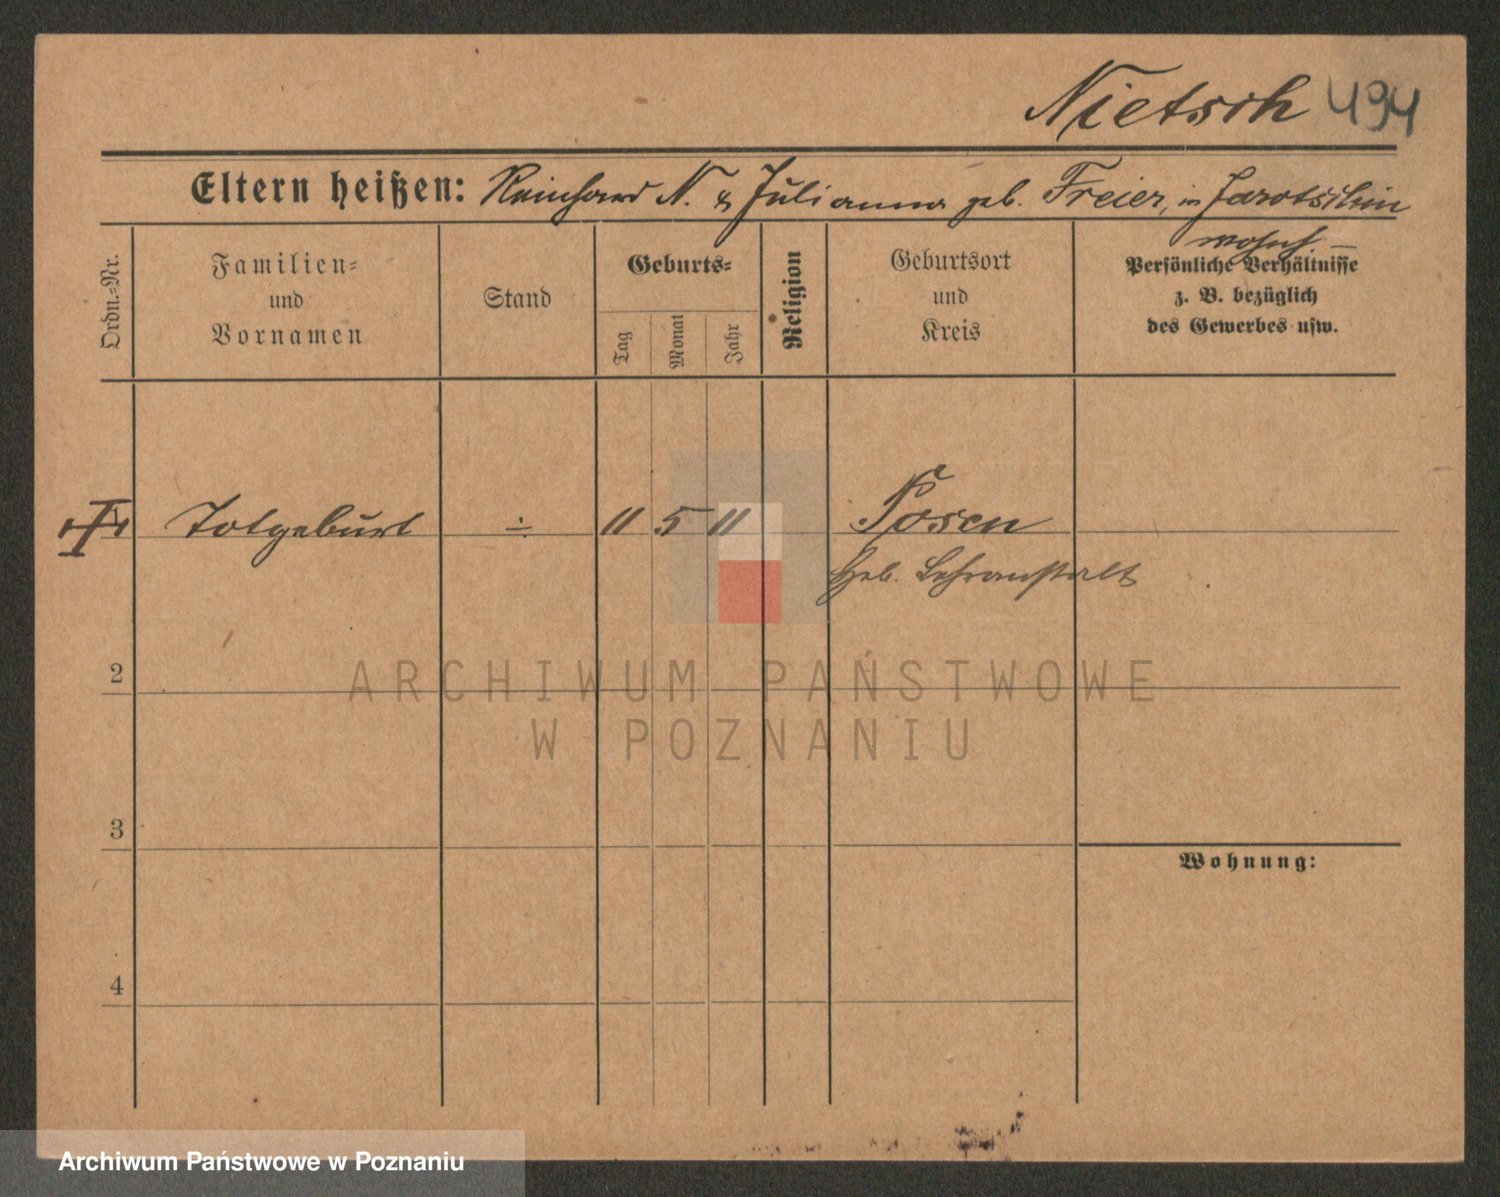 Nietsch 494
Eltern heißen: Reinhard N. & Julianna geb. Freier, in Jarotschin
wohnh. –
Ordn.-Nr.
Familien-
und
Vornamen
Stand
Geburts-
Tag
Monat
Jahr
Religion
Geburtsort
und
Kreis
Persönliche Verhältnisse
z. B. bezüglich
des Gewerbes usw.
1 Totgeburt ÷ 11 5 11 Posen
Heb. Lehranstalt
2
3
4
Wohnung:
ARCHIWUM PAŃSTWOWE
W POZNANIU
Archiwum Państwowe w Poznaniu